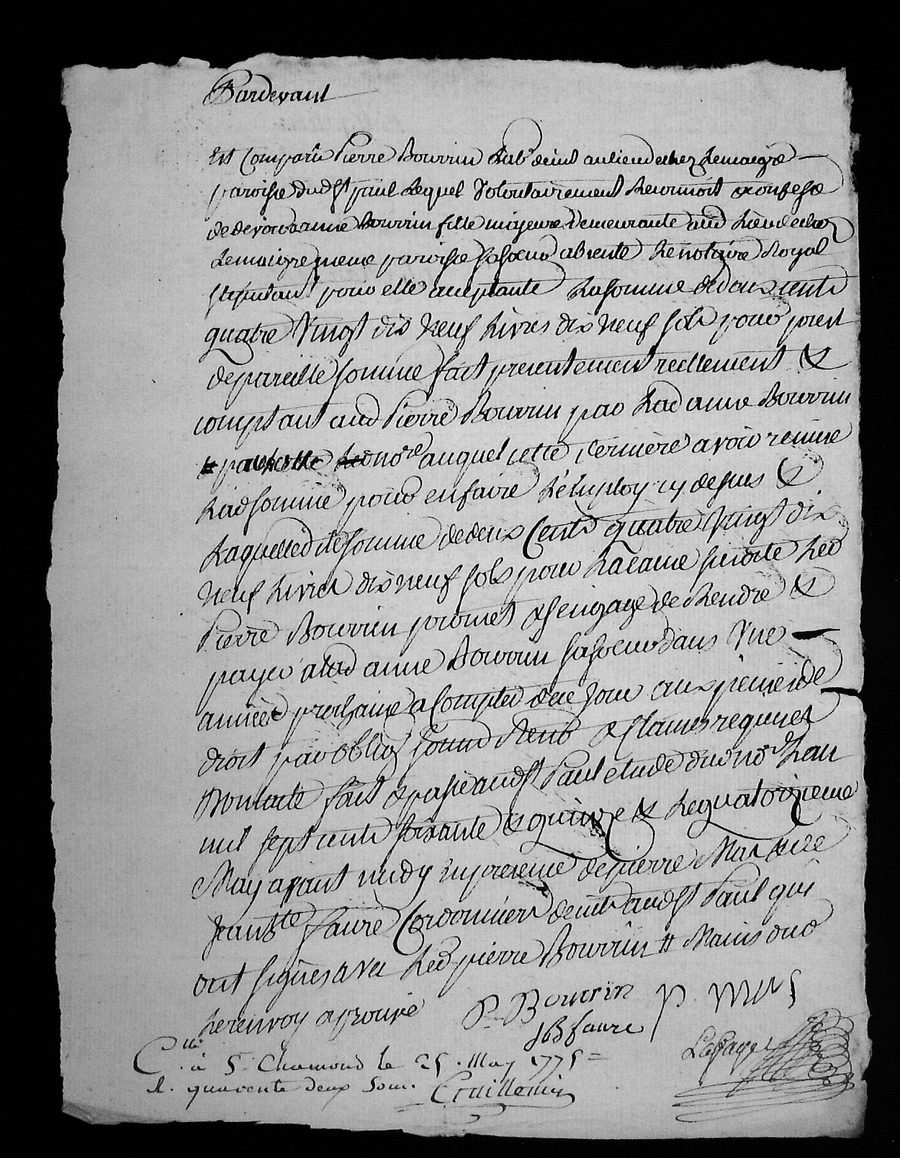 Pardevant
Est Comparu Pierre Bourrin Labr demt au lieu de chez Lemaigre
paroisse dudt St paul Lequel volontairement Reconnoit & confesse
de devoir a anne Bourrin fille majeure demeurante aud Lieu de chez
Lemaigre meme paroisse sa soeur absente Le notaire Royal
stipulant pour elle aceptante La somme de deux cents
quatre vingt dix neuf Livres dix neuf sols pour prest
de pareille somme fait presentement reellement &
comptant aud Pierre Bourrin par Lad anne Bourrin
nore auquel cette derniere avoir remise
Lad somme pour en faire L'employ cy dessus &
Laquelled te somme de deux Cents quatre vingt dix
neuf Livres dix neuf sols pour La cause susdite Led
Pierre Bourrin promet & s'engage de Rendre &
payer a lad anne Bourrin sa soeur dans Une
année prochaine a Compter de ce Jour aux peines de
droit par oblig soumd Renb & Clauses requises
Dont acte fait & passé aud St Paul etude du nore Lan
mil sept cents soixante & quinze & Le quatorzieme
May avant midy en presence de pierre Mas de
Jean Bte faure Cordonniers demts aud St Paul qui
ont signés avec Led pierre Bourrin # Mains
le renvoy aprouvé
P. Bourrin P. Mas
JB faure
Lafay
Clle à St Chamond le 25. May 1775 =
R. quarente deux sous.